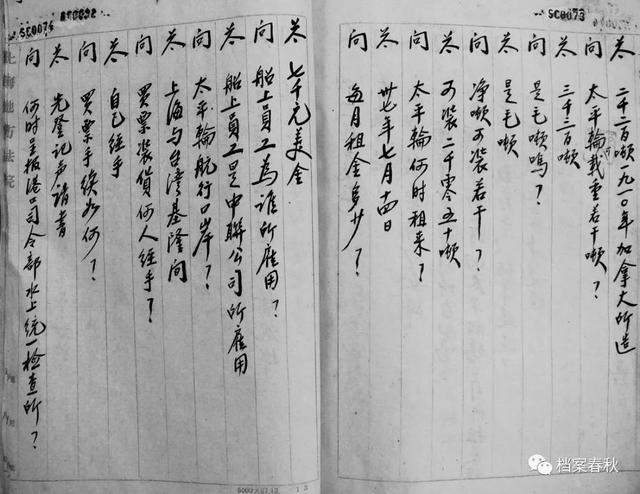 SC0073
答 二千二百噸九一〇年加拿大所造
问 太平輪載重若干噸？
答 三千二百噸
问 是毛噸嗎？
答 是毛噸
问 净噸可装若干？
答 可装二千零五十噸
问 太平輪何时租来？
答 卅七年七月十四日
问 每月租金多少？
SC0076
答 七千元美金
问 船上員工為誰所雇用？
答 船上員工是中聯公司所雇用
问 太平輪航行口岸？
答 上海与台湾基隆间
问 買票装貨何人经手？
答 自己经手
问 買票手续如何？
答 先登记声請書
问 何时呈报港口司令部水上统一檢查所？
上海地方法院
档案春秋